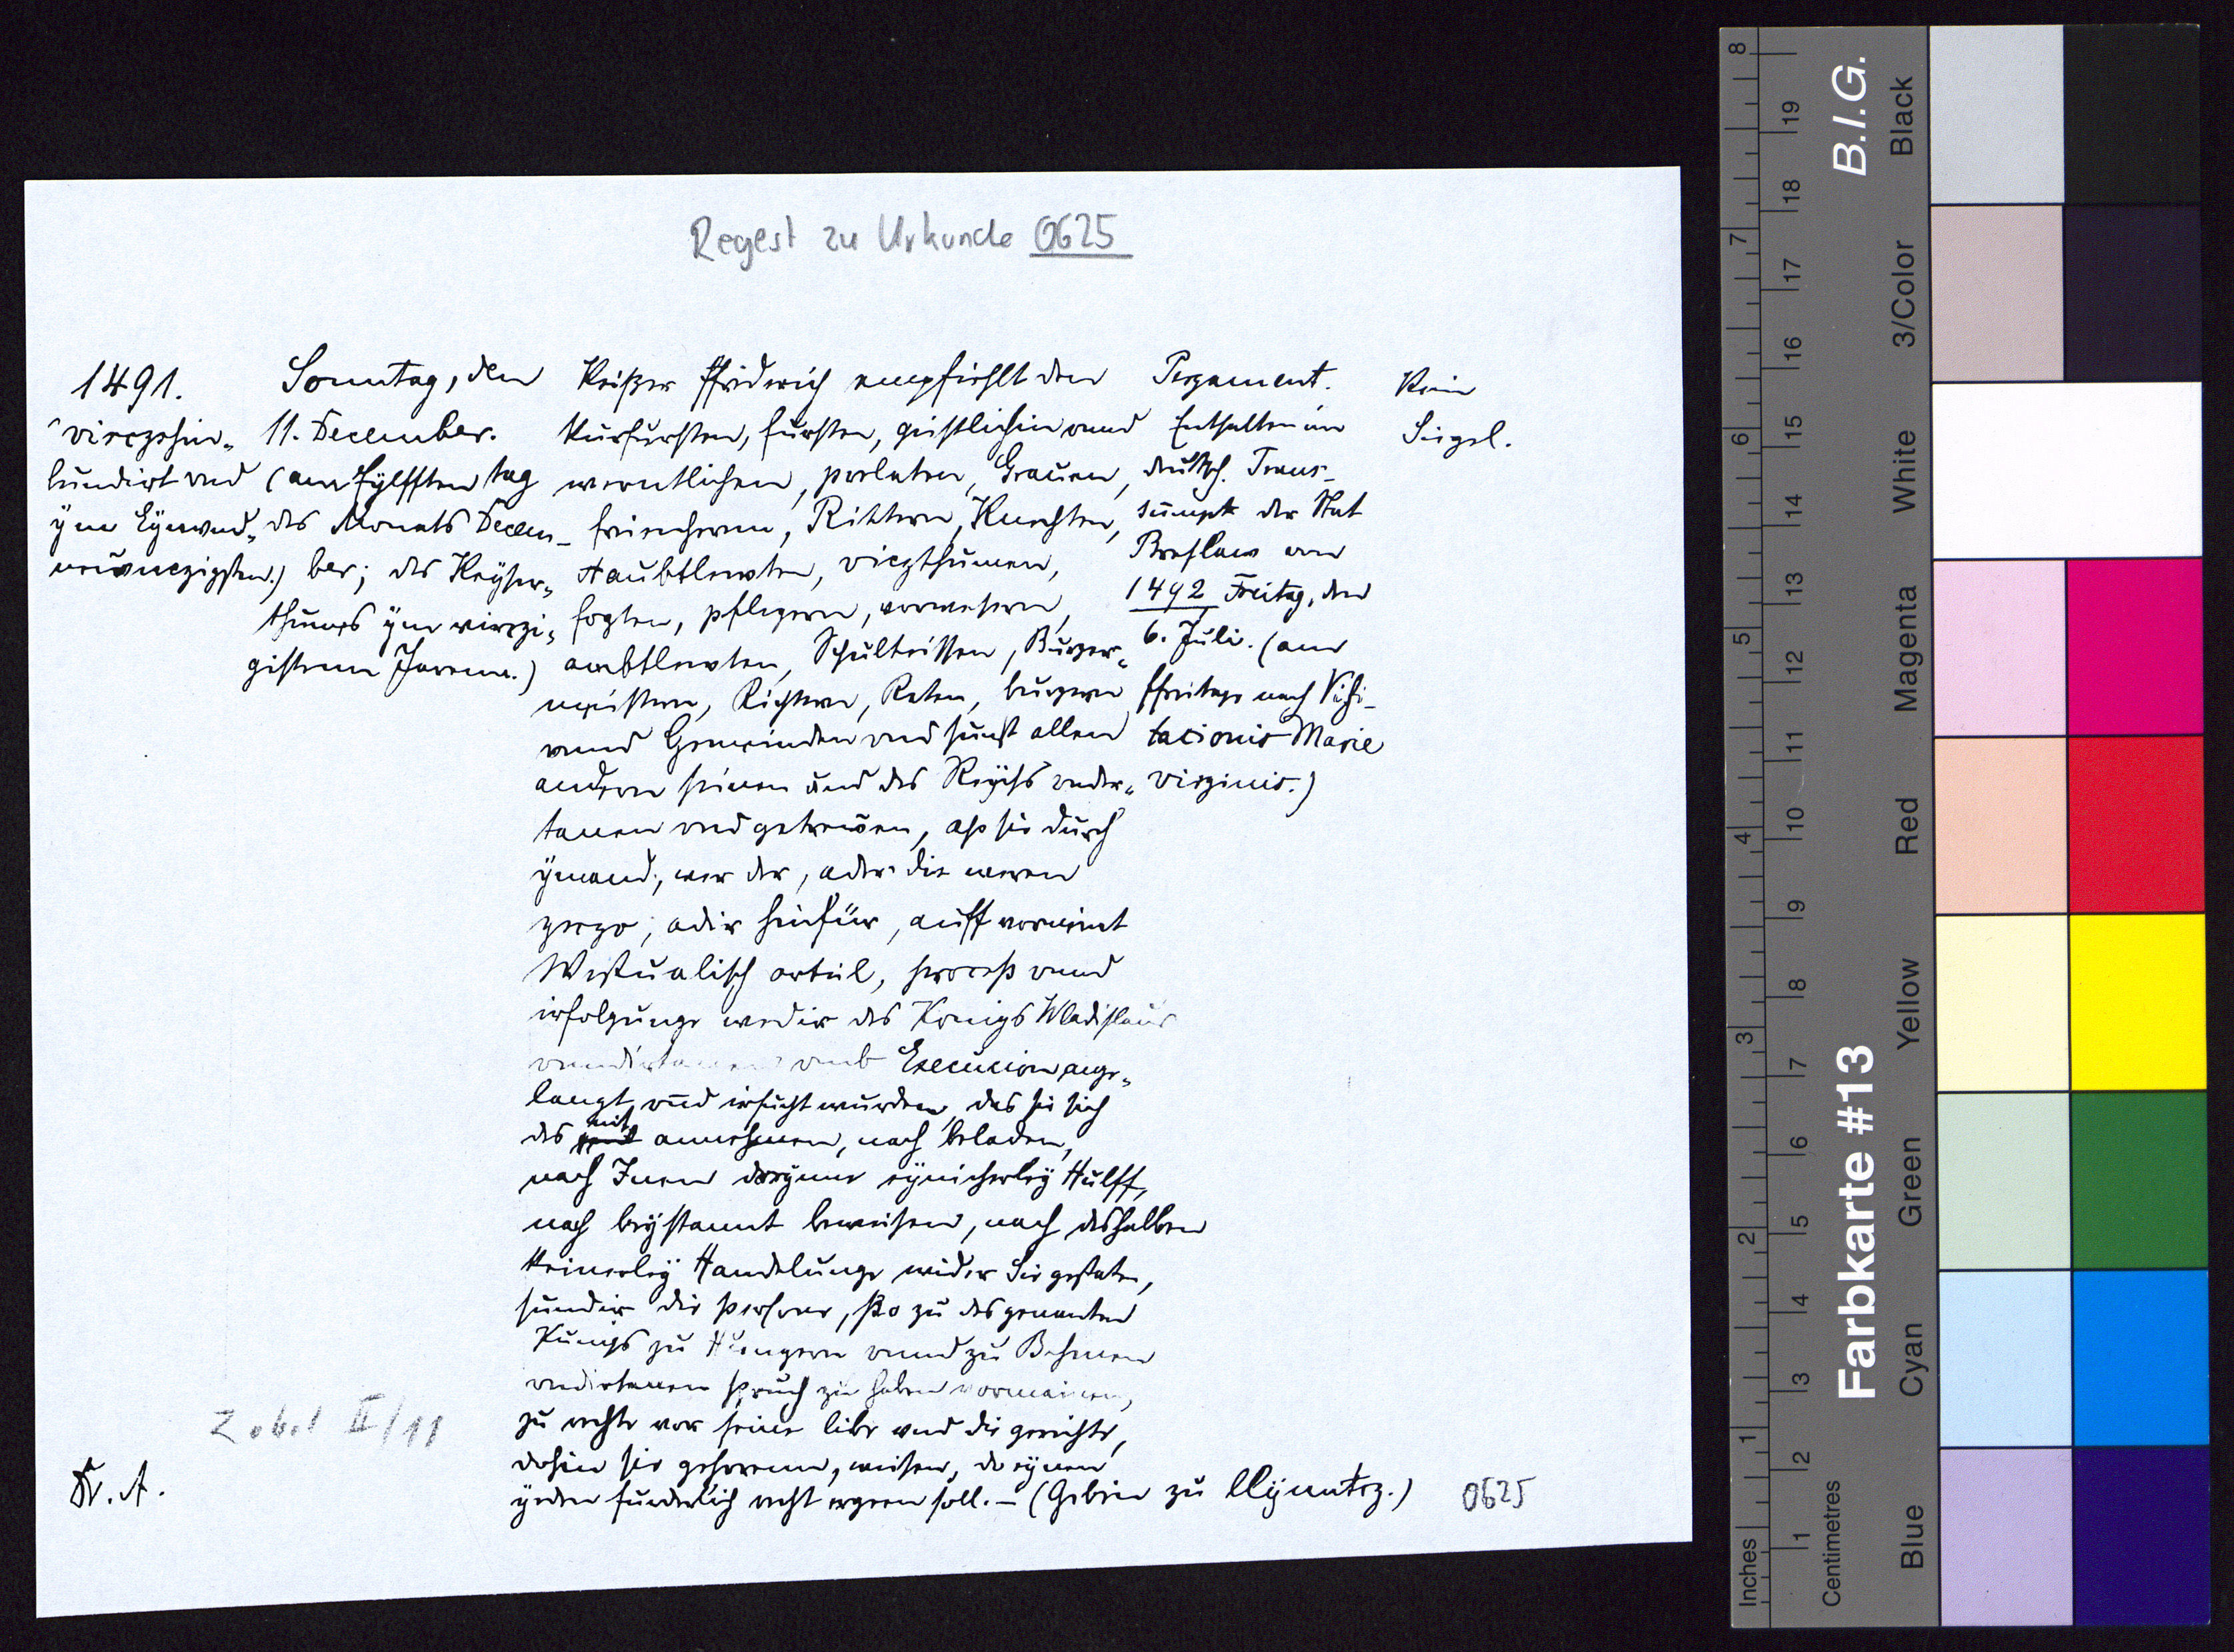 Regest zu Urkunde 0625
1491.
vierzehin-
hundirt und
ÿm Eÿnund-
neünczigsten.)
Sonntag, den
11. December.
(am Eÿlfften tag
des Monats Decem-
ber; des Keÿser-
thumes ÿm vierzi-
gistenn Jarenn.)
Keißer ffridrich empfiehlt den
Kurfursten, fürsten, geistlichin unnd
werntlichen, prelaten, Grauen,
freienherrn, Rittern, Knechten,
Haubtlewten, viczthumen,
fogten, pflegern, vorwesern,
ambtlewten, Schulteissen, Burger-
meistern, Richtern, Reten, burgern
unnd Gemeinden und sunst allen
andern seinen und des Reÿchs under-
tanen und getrewen, ap sie durch
ÿmand, wer der, ader die weren
adir hinfür, auff vormeint
Westualisch orteil, process unnd
irfolgunge wedir des Konigs Wladislaus
undirtanen umb Execucion ange-
langt und irsucht wurden, das sie sich
des nit annehmen, noch beladen,
noch Inen dorÿnne eÿnicherleÿ Hülff,
noch beÿstannt beweisen, noch deshalben
keinerleÿ Handelunge wider Sie gestaten,
sundir die personen, sso zu des genanten
Kunigs zu Hungern unnd zu Behmen
undirtanen spruch zu haben vormainen,
zu rechte vor seine libe und die gerichte,
dohin sie gehorenn, weisen, do eÿnen
ÿeden furderlich recht ergeen soll. – (Gebin zu Lÿnntcz.)
Pergament.
Enthalten im
deutsch. Trans-
sumpt der Stat
Breslaw vom
1492 Freitag, den
6. Juli. (am
ffreitage nach Visi-
tacionis Marie
virginis.)
Kein
Siegel.
Zobel II/11
Kr. A.
0625